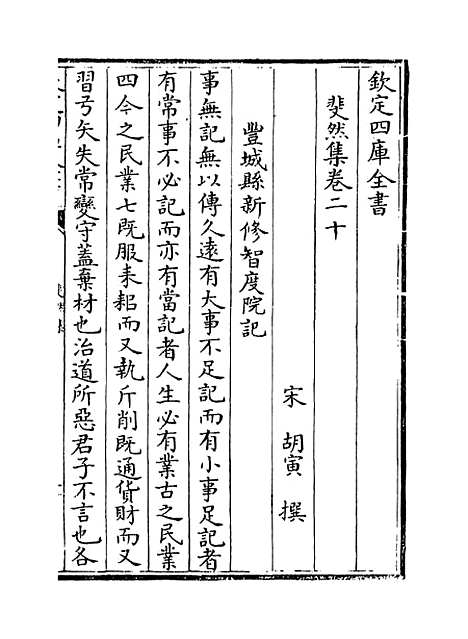 欽定四庫全書
斐然集卷二十
宋 胡寅 撰
豐城縣新修智度院記
事無記無以傳久遠有大事不足記而有小事足記者
有常事不必記而亦有當記者人生必有業古之民業
四今之民業七既服耒耜而又執斤削既通貨財而又
習弓矢失常變守蓋棄材也治道所惡君子不言也各